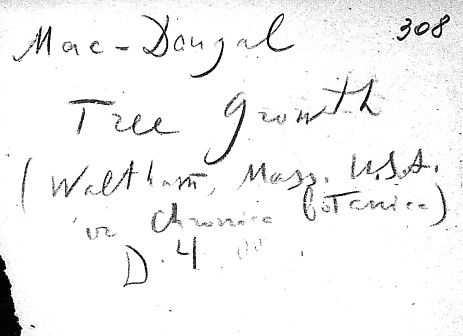 308
Mac-Dougal
Tree Growth
(Waltham, Mass. U.S.A.
in Chronica botanica)
D. 4